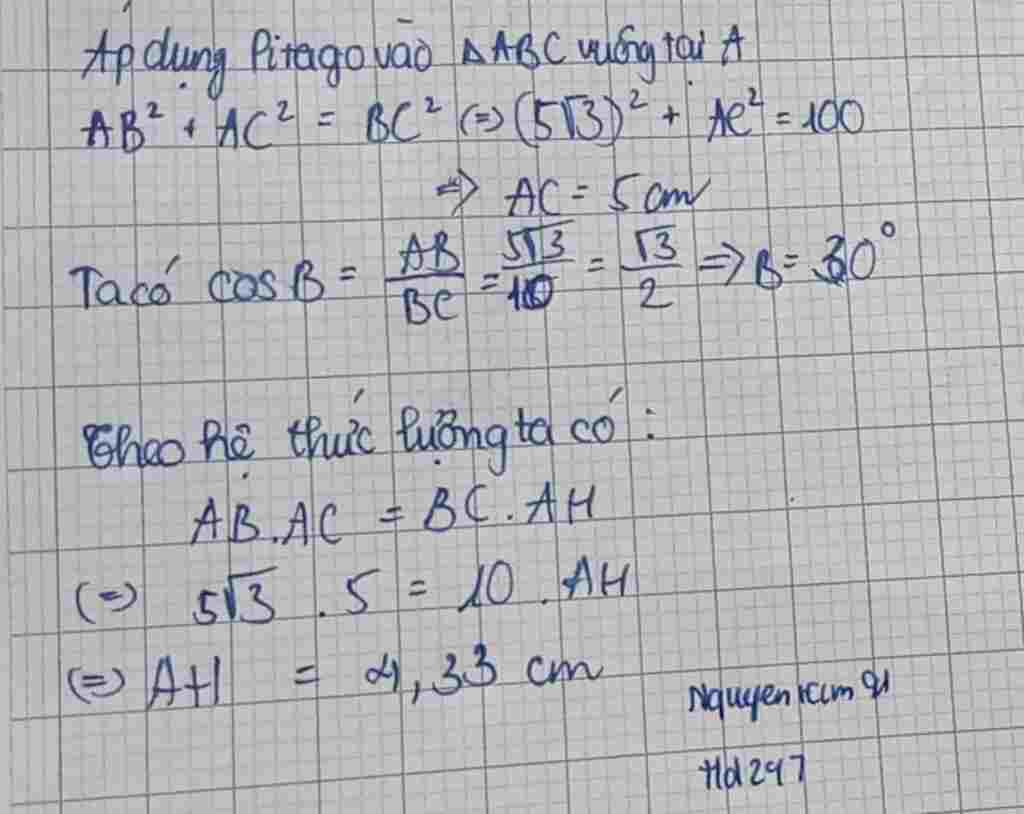 Áp dụng Pitago vào ΔABC vuông tại A
AB² + AC² = BC² (=) (5√3)² + AC² = 100
=> AC = 5 cm
Ta có cos B = AB/BC = 5√3/10 = √3/2 => B = 30°
Theo hệ thức lượng ta có :
AB.AC = BC.AH
(=) 5√3 . 5 = 10 . AH
(=) AH = 4,33 cm
Nguyen kim
Hd297